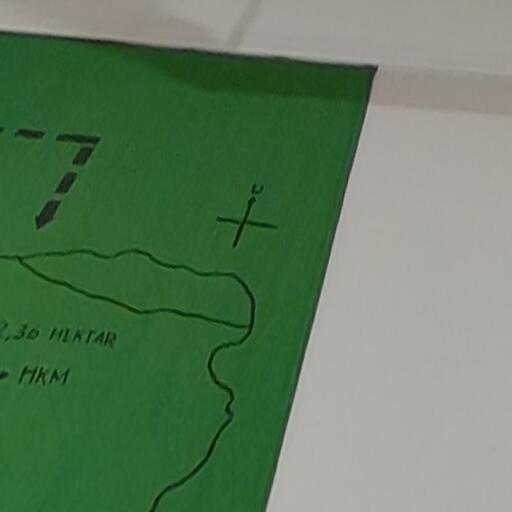 U
2,36 HEKTAR
HKM